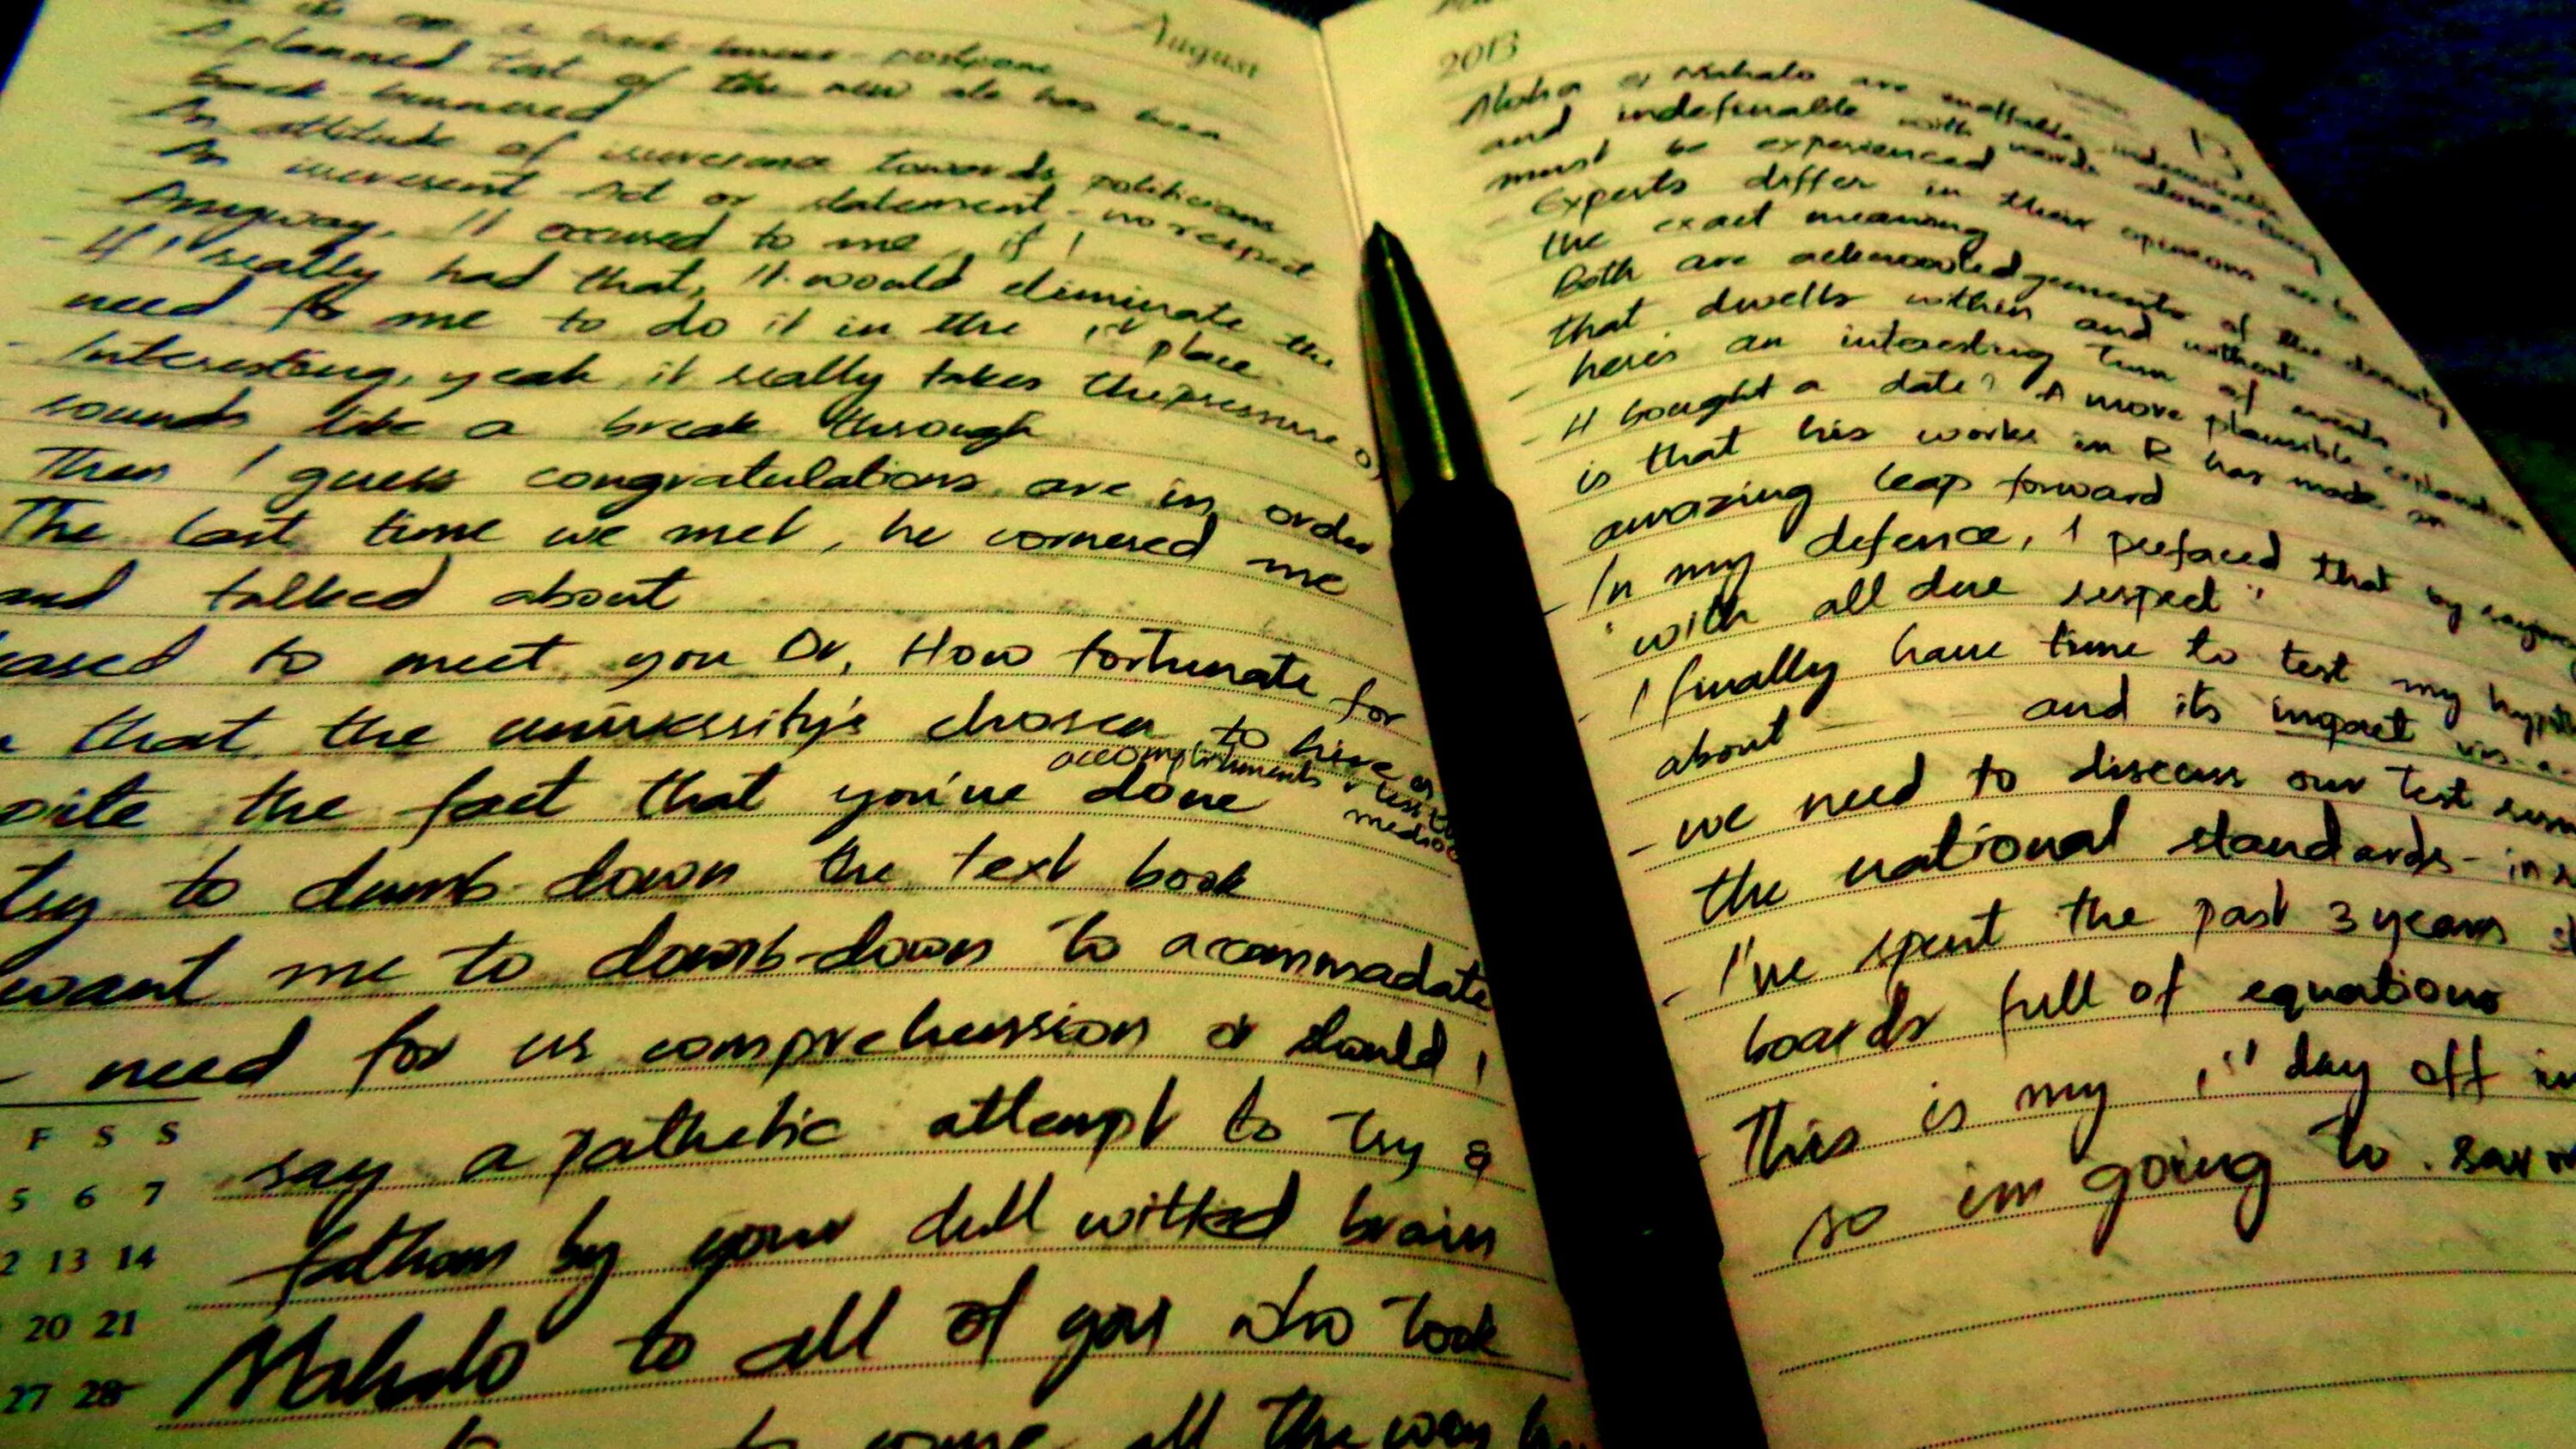 August
back burner - postpone
A planned test of the new ale has been
back burnered
An attitude of irreverance towards politicians
An irreverent Act or statement - no respect
Anyway, It occured to me, if I
- If I really had that, it would eliminate the
need for me to do it in the 1st place.
- Interesting, yeah it really takes the pressure
sounds like a break through
Then I guess congratulations are in order
The last time we met, he cornered me
and talked about
to meet you Dr, How fortunate for
that the university's chosen to hire
accomplishments
the fact that you've done
try to dumb down the text book
want me to dumb-down to accommadate
- need for us comprehension or should I
say a pathetic attempt to try &
fathom by your dull witted brain
Mahalo to all of you who took
to come all the way
F S S
5 6 7
13 14
20 21
27 28
2013
Aloha or Mahalo are
and indefinable with words alone, they
must be experienced
Experts differ in their opinions as to
the exact meaning
Both are acknowledgements of the divinity
that dwells within and without
- here's an interesting turn of events
- H bought a date? A more plausible explanation
is that his works in R has made an
amazing leap forward
- In my defence, I prefaced that by saying
"with all due respect"
- I finally have time to test my
about — and its impact
- we need to discuss our test
the national standards - in
- I've spent the past 3 years
boards full of equations
This is my 1st day off in
so im going to